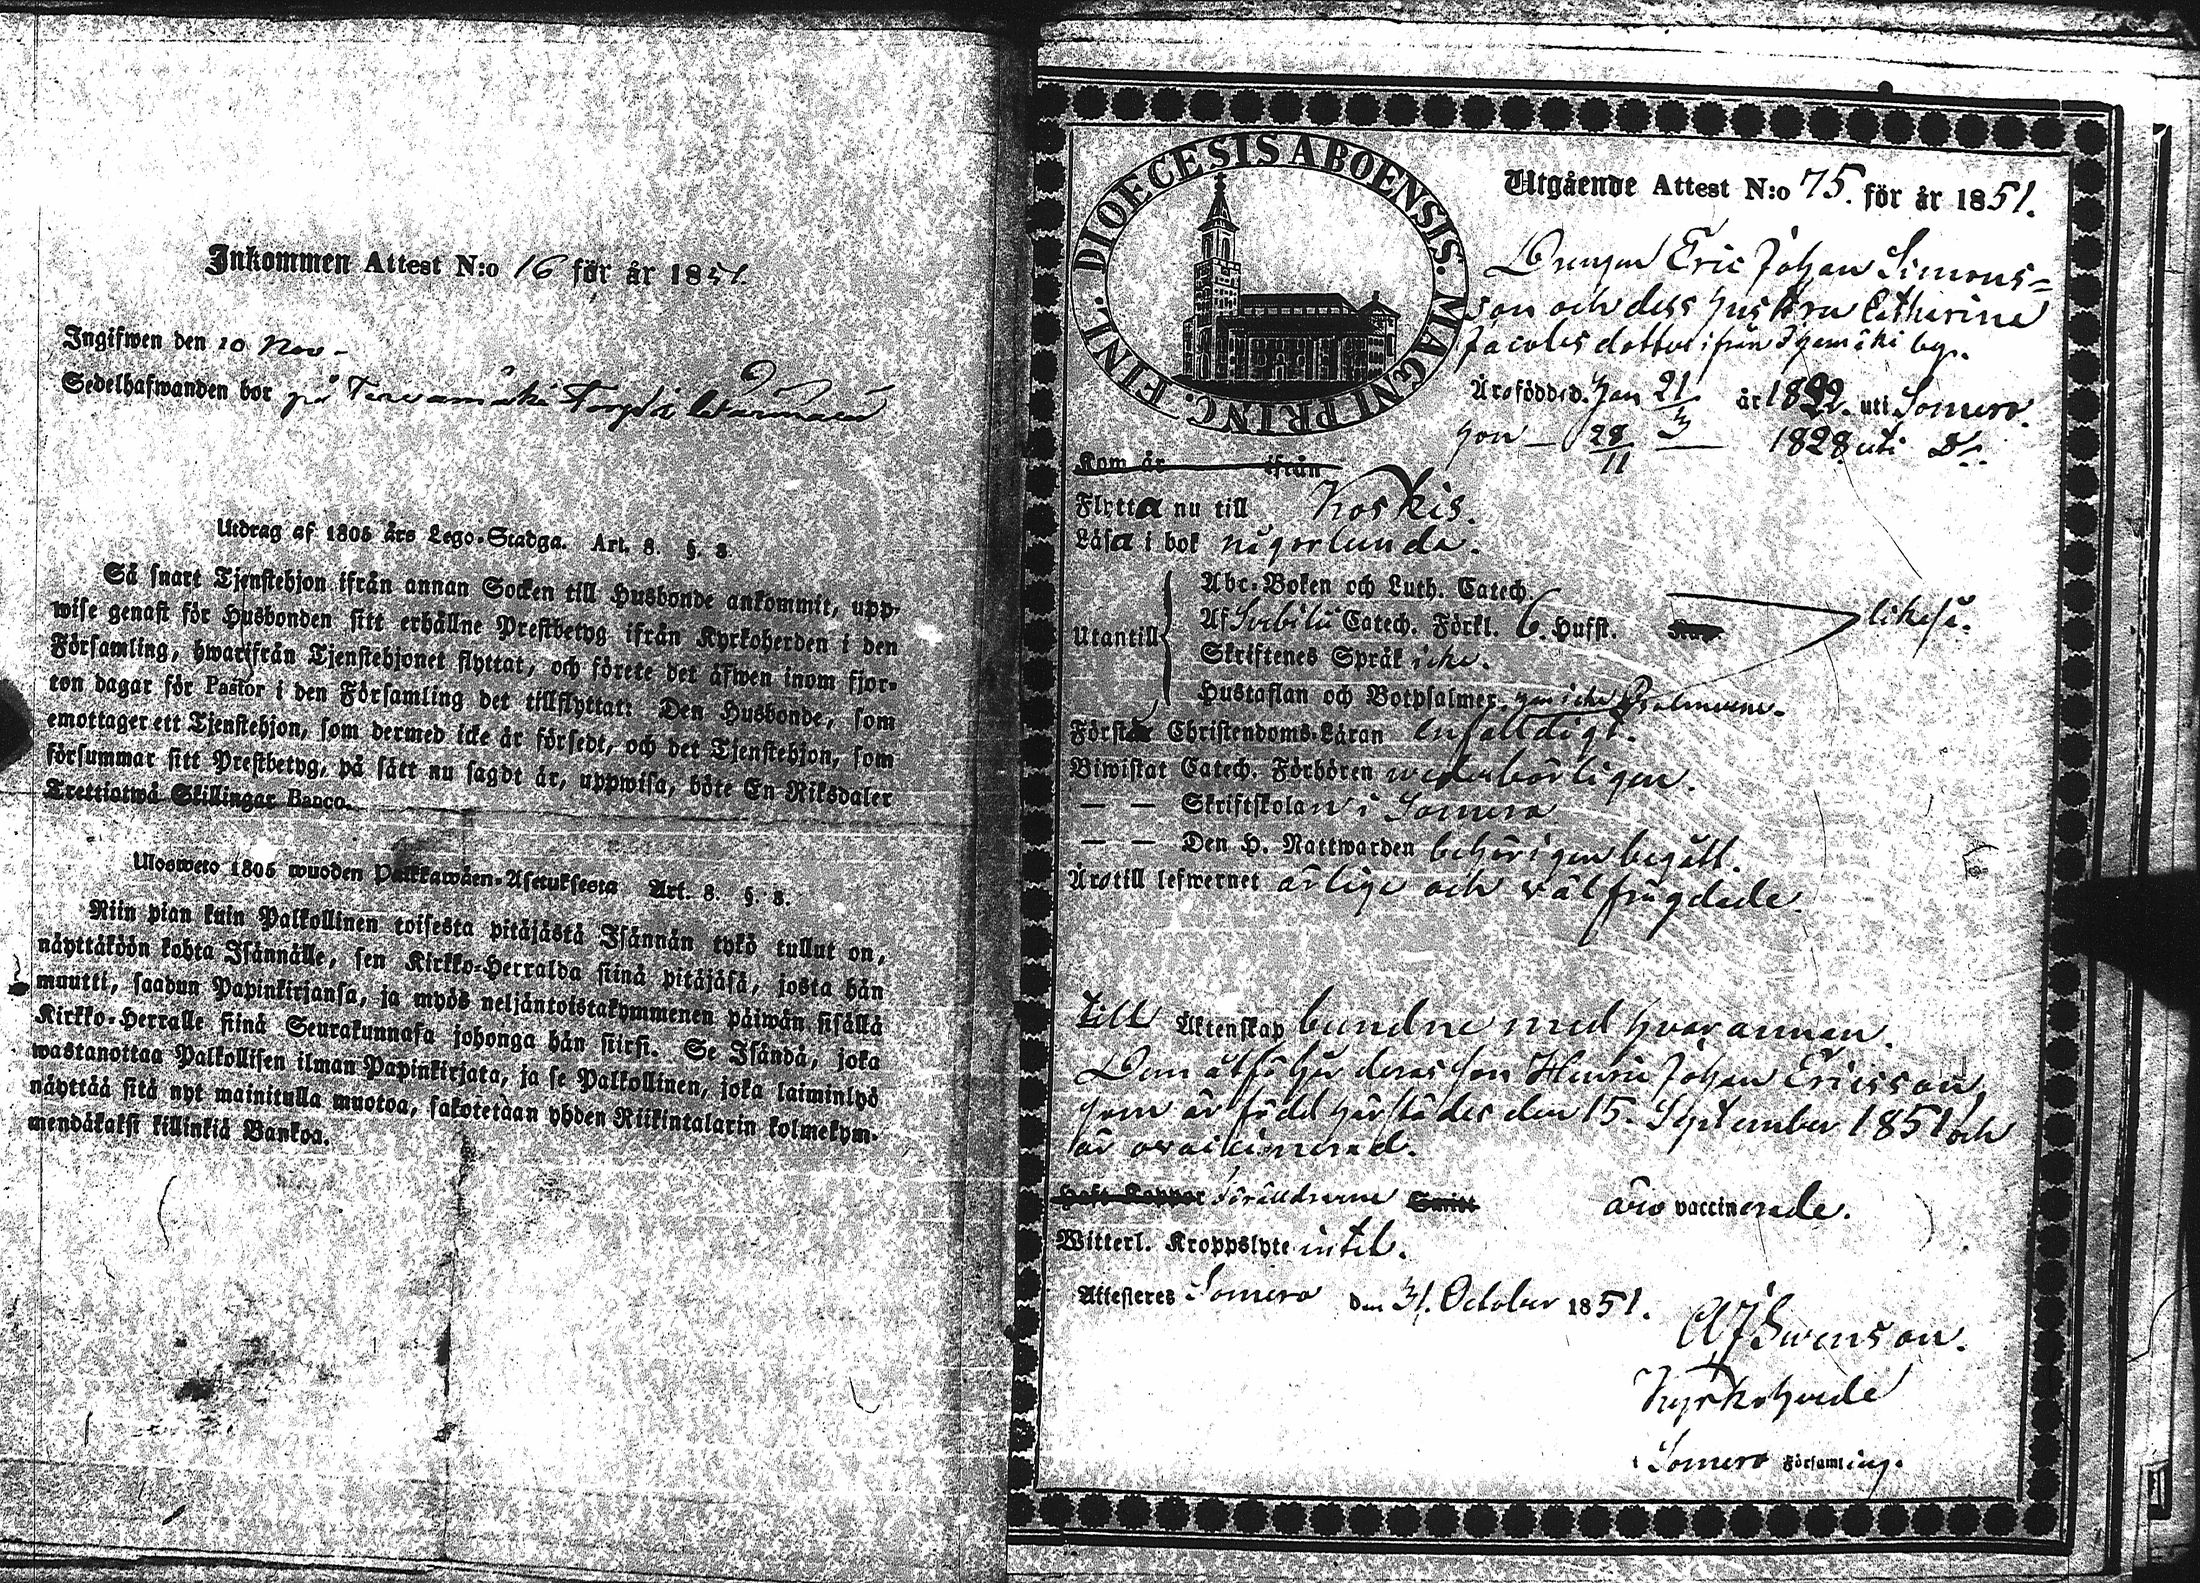 Inkommen Attest N:o 16 för år 1851.
Ingifwen den 10 Nov.
Sedelhafwanden bor på Torp
Utdrag af 1805 års Lego-Stadga. Art. 8. §. 8.
Så snart Tjenstehjon ifrån annan Socken till Husbonde ankommit, upp-
wise genast för Husbonden sitt erhållne Prestbetyg ifrån Kyrkoherden i den
Församling, hwarifrån Tjenstehjonet flyttat, och förete det äfwen inom fjor-
ton dagar för Pastor i den Församling det tillflyttat: Den Husbonde, som
emottager ett Tjenstehjon, som dermed icke är försedt, och det Tjenstehjon, som
försummar sitt Prestbetyg, på sätt nu sagdt är, uppwisa, böte En Riksdaler
Trettiotwå Skillingar Banco.
Ulosweto 1805 wuoden Palkkawäen-Asetuksesta Art. 8. §. 8.
Niin pian kuin Palkollinen toisesta pitäjästä Isännän tykö tullut on,
näyttäköön kohta Isännälle, sen Kirkko-Herralda siinä pitäjäsä, josta hän
muutti, saadun Papinkirjansa, ja myös neljäntoistakymmenen päiwän sisällä
Kirkko-Herralle siinä Seurakunnasa johonga hän siirsi. Se Isändä, joka
wastanottaa Palkollisen ilman Papinkirjata, ja se Palkollinen, joka laiminlyö
näyttää sitä nyt mainitulla muotoa, sakotetaan yhden Riikintalarin kolmekym-
mendäkaksi killinkiä Bankoa.
DIOECESIS ABOENSIS. MAGNI PRINC. FINL.
Utgående Attest N:o 75. för år 1851.
Drengen Eric Johan Simons-
son och dess hustru Catharina
Jacobs dotter ifrån by.
Äro född d. han 21/3 år 1822. uti Somero.
hon — 28/11 — 1828 uti Do.
Kom år ifrån
Flytta nu till Koskis.
Läsa i bok någorlunda.
Utantill
Abc-Boken och Luth. Catech.
Af Svebilii Catech. Förkl. 6. Hufst.
likaså.
Skriftenes Språk icke.
Hustaflan och Botpsalmer. Psalmerne.
Förstår Christendoms-Läran enfalldigt.
Biwistat Catech. Förhören wederbörligen.
— — Skriftskolan i Somero
— — Den H. Nattwarden behörigen begått.
Äro till lefwernet ärlige och välfrägdade.
till Äktenskap bundne med hvarannan.
Dem åtföljer deras son Henric Johan Ericsson,
som är född härstädes den 15. September 1851 och
är ovaccinerad.
Haft Koppor Föräldrarne äro vaccinerade.
Witterl. Kroppslyte intet.
Attesteres Somero den 31. October 1851.
A J Swenson.
Kyrkoherde
i Somero Församling.